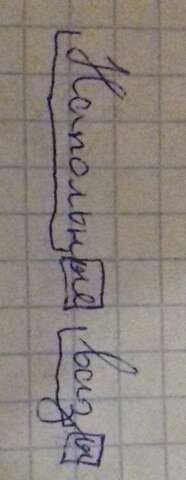 Напольные вазы